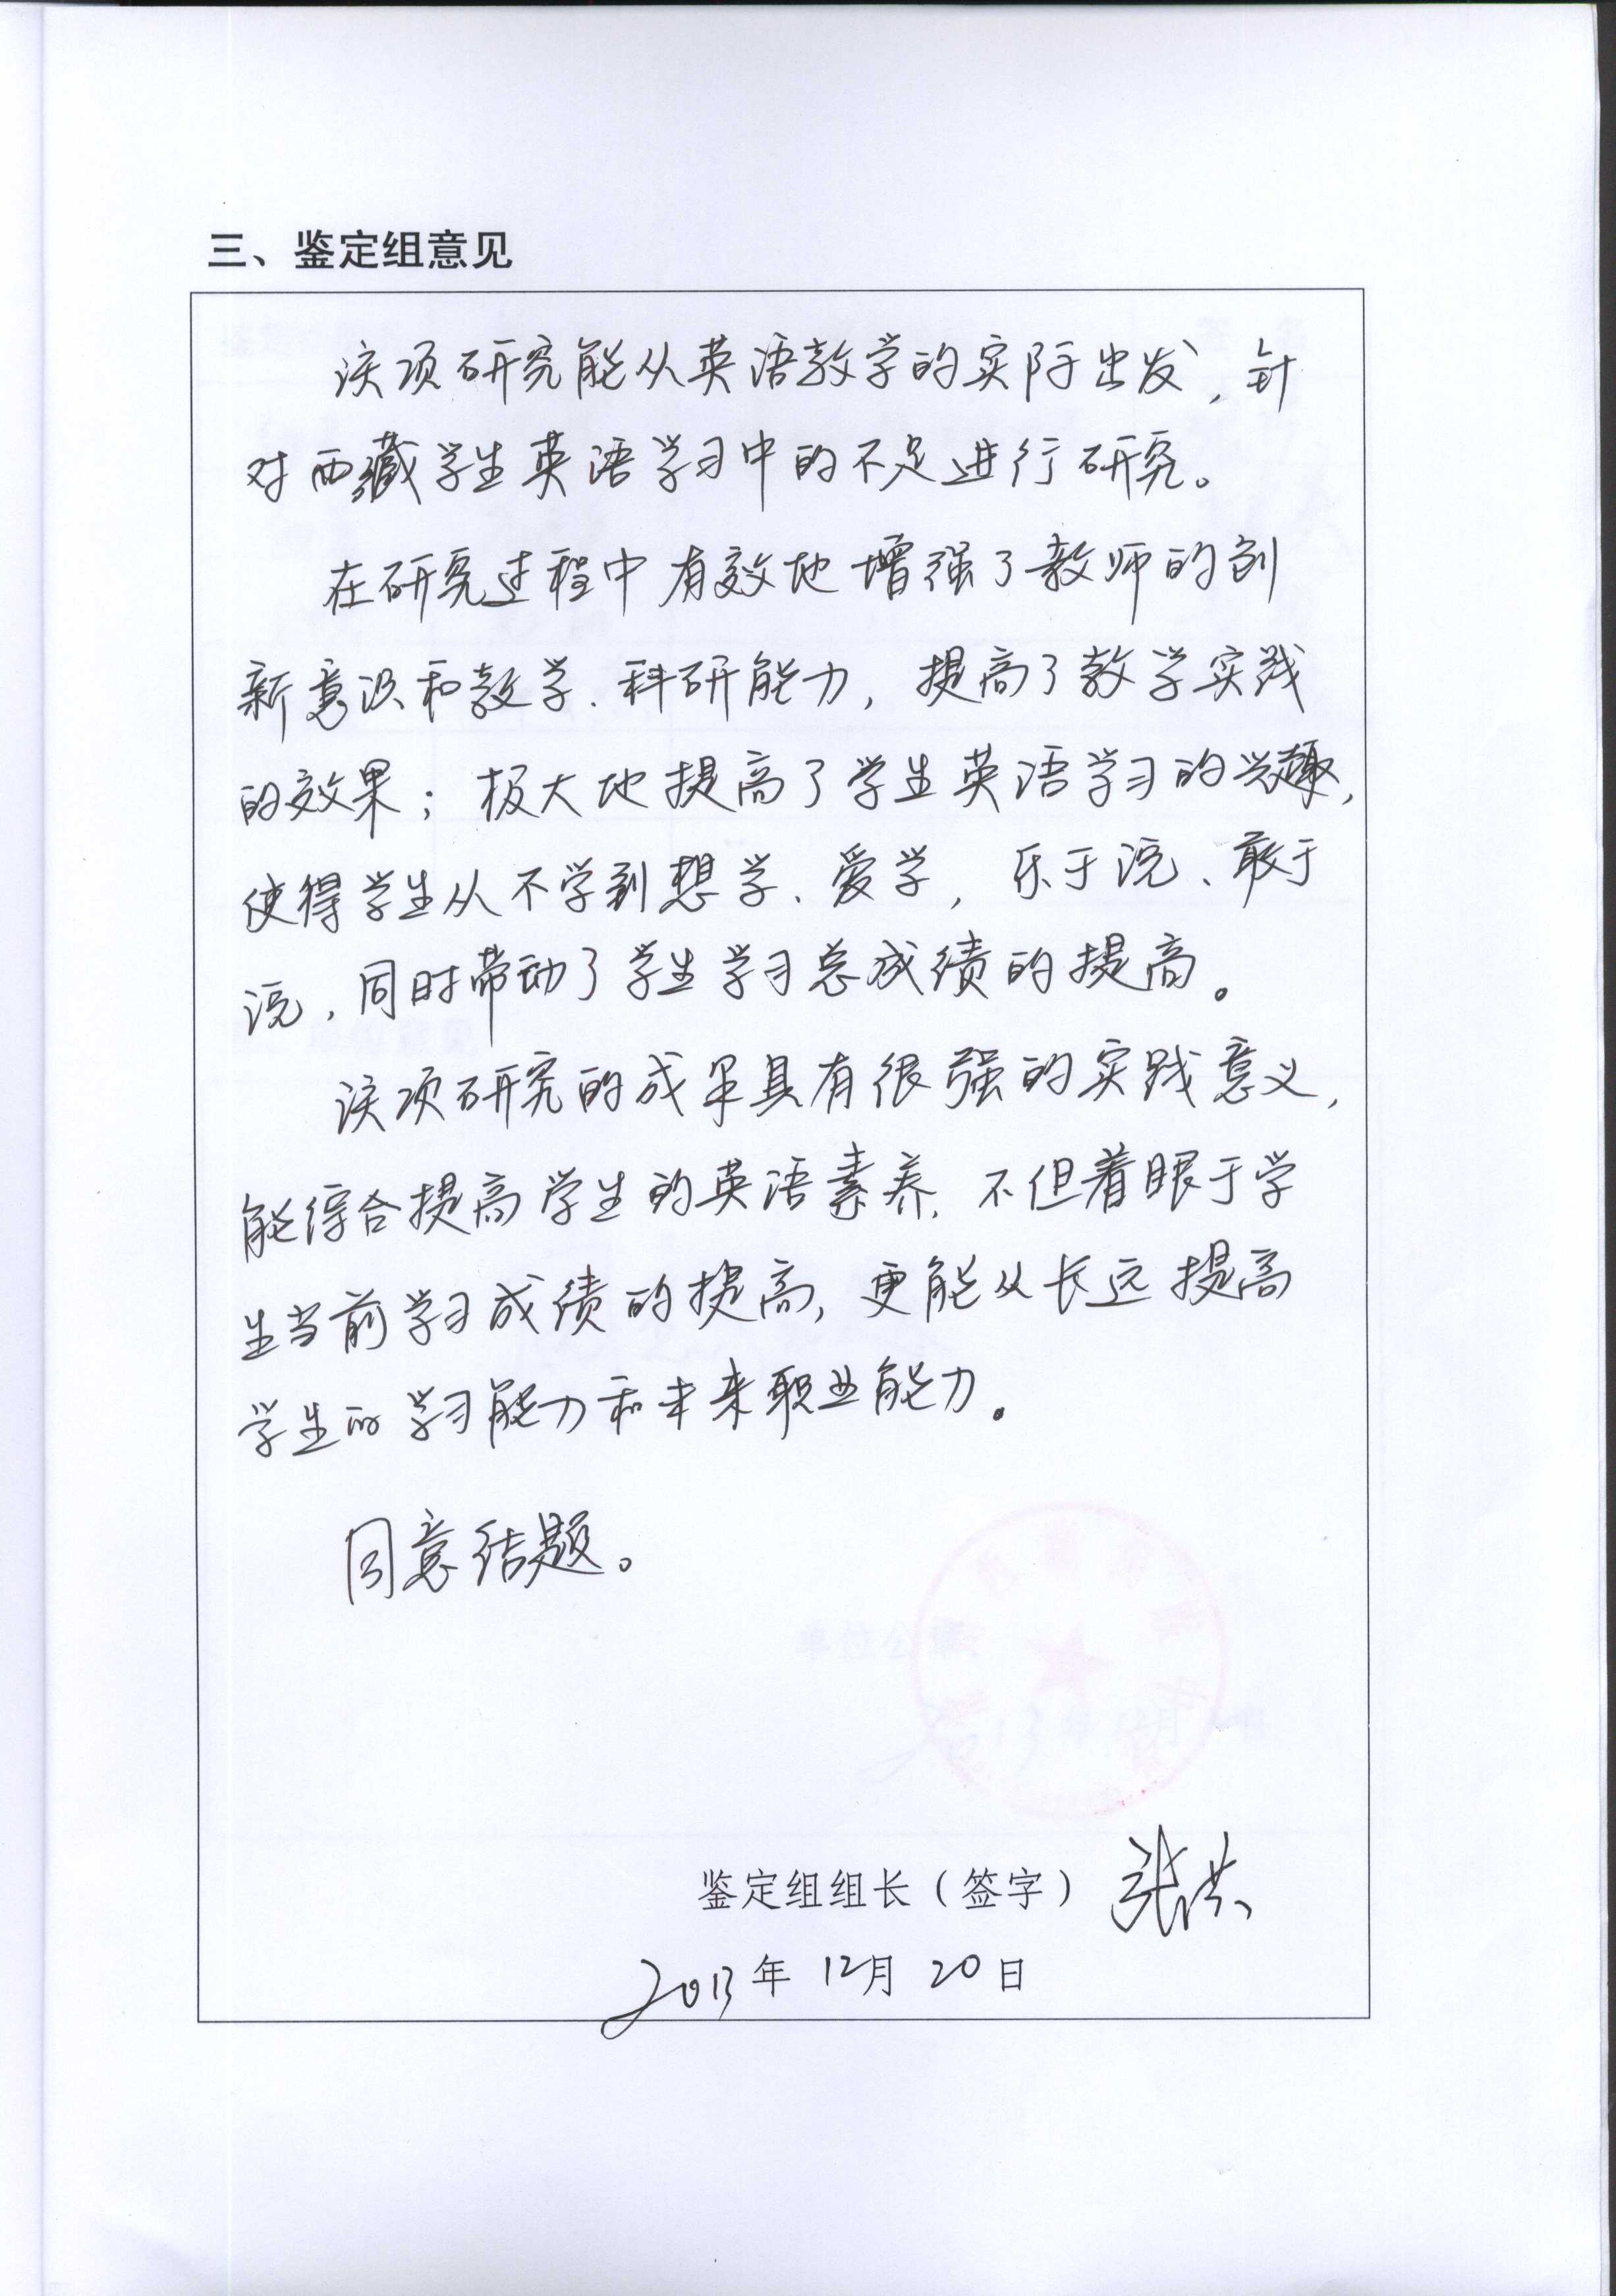 三、鉴定组意见
该项研究能从英语教学的实际出发，针
对西藏学生英语学习中的不足进行研究。
在研究过程中有效地增强了教师的创
新意识和教学、科研能力，提高了教学实践
的效果；极大地提高了学生英语学习的兴趣，
使得学生从不学到想学、爱学，乐于说、敢于
说，同时带动了学生学习总成绩的提高。
该项研究的成果具有很强的实践意义，
能综合提高学生的英语素养，不但着眼于学
生当前学习成绩的提高，更能从长远提高
学生的学习能力和未来职业能力。
同意结题。
鉴定组组长（签字）张洪
2013年12月20日